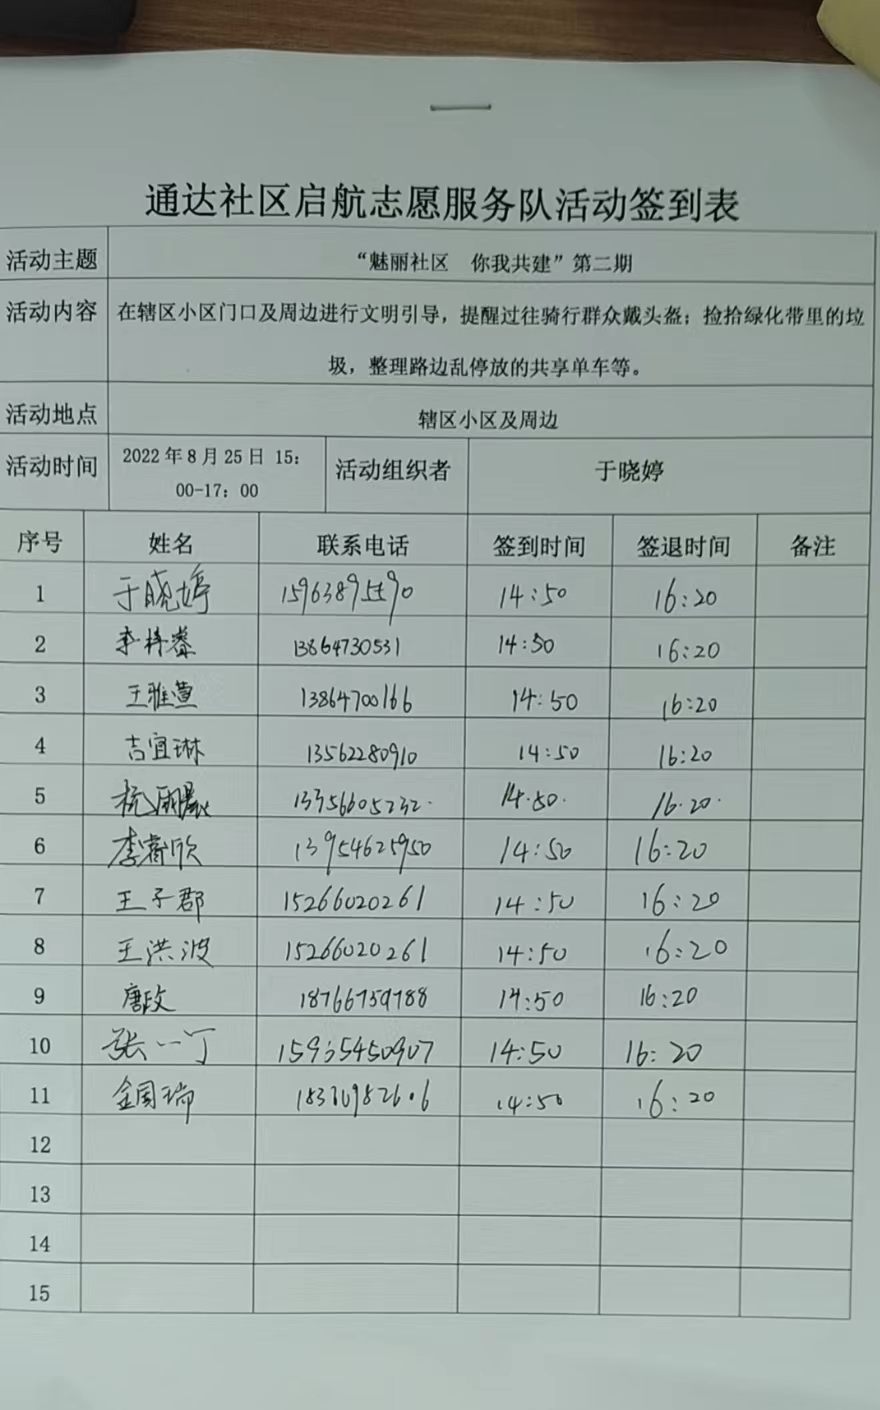 通达社区启航志愿服务队活动签到表
活动主题 “魅丽社区 你我共建”第二期
活动内容 在辖区小区门口及周边进行文明引导，提醒过往骑行群众戴头盔；捡拾绿化带里的垃
圾，整理路边乱停放的共享单车等。
活动地点 辖区小区及周边
活动时间 2022 年 8 月 25 日 15：
00-17：00 活动组织者 于晓婷
序号 姓名 联系电话 签到时间 签退时间 备注
1 于晓婷 14:50 16:20
2 李梓睿 13864730531 14:50 16:20
3 王雅萱 13864700166 14:50 16:20
4 吉宜琳 13562280910 14:50 16:20
5 14.50. 16.20.
6 李睿欣 13954625950 14:50 16:20
7 王子郡 15266020261 14:50 16:20
8 王洪波 15266020261 14:50 16:20
9 唐政 14:50 16:20
10 张一丁 14:50 16:20
11 金国瑞 14:50 16:20
12
13
14
15